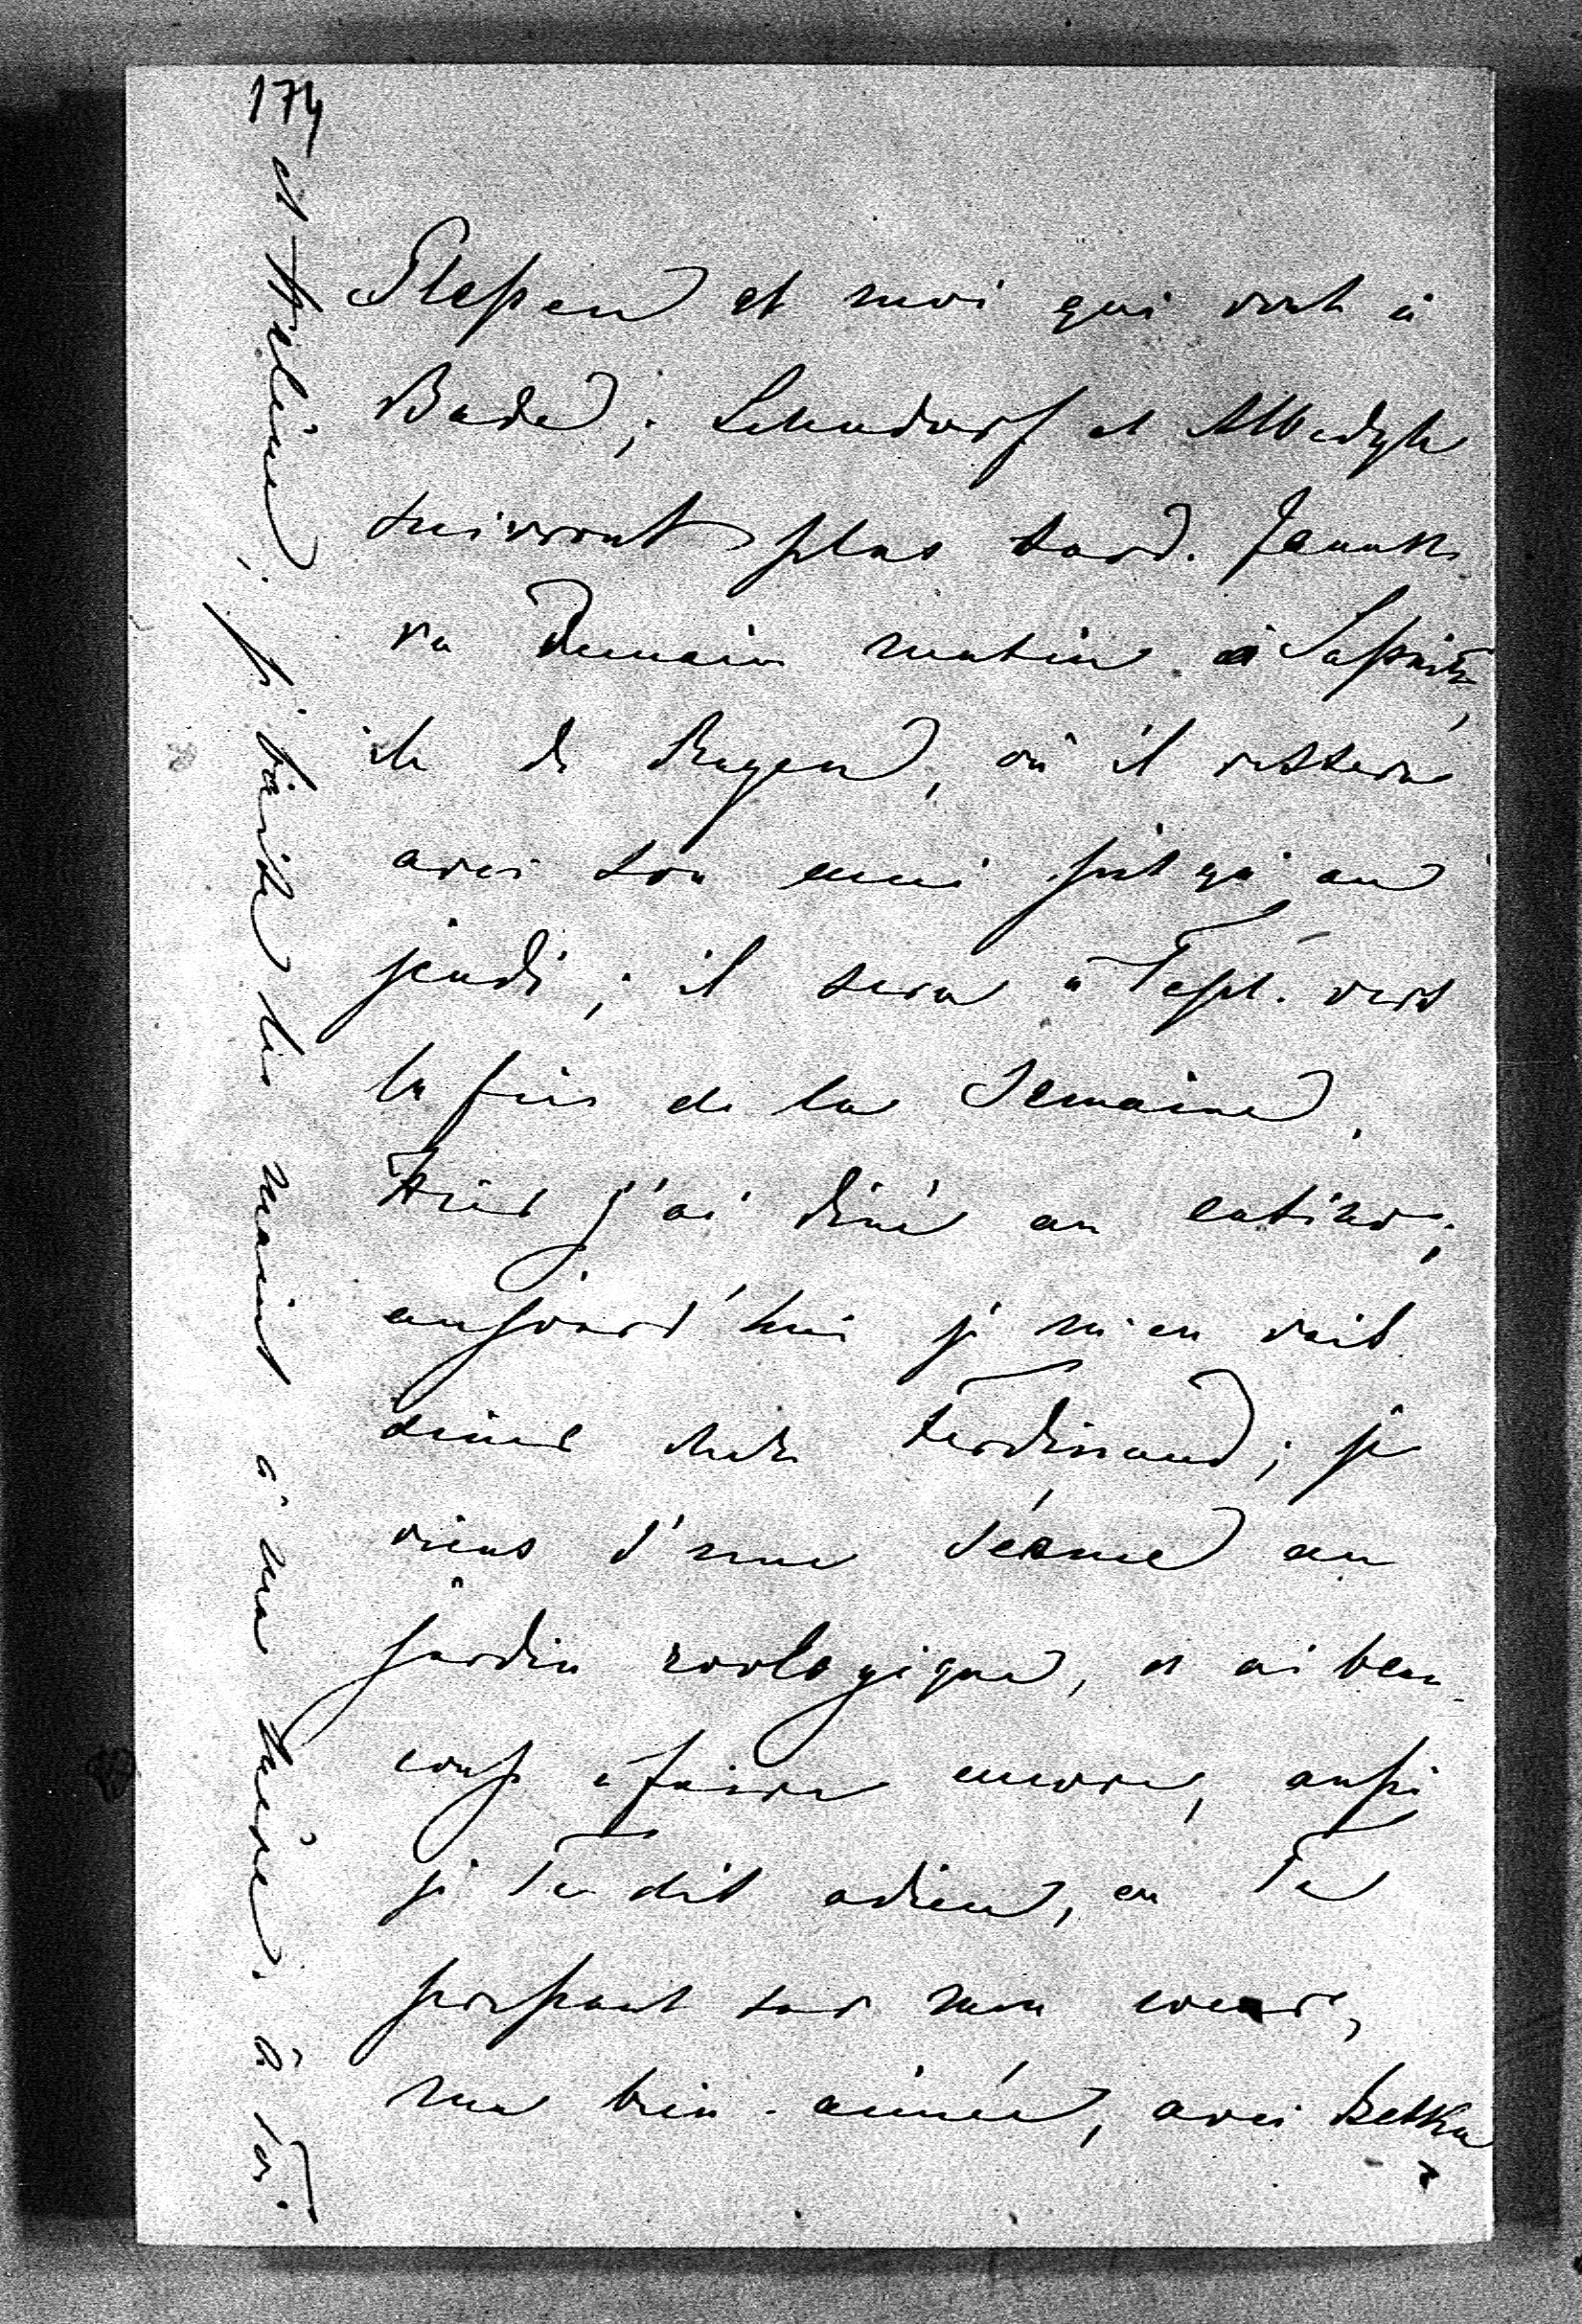 174
Stepan et moi qui vont à
Bade; Lehndorf et Albedyll
suivront plus tard.
va demain matin à Sassnitz,
île de Rugen, où il restera
avec son ami jusqu'au
jeudi; il sera à Tepl. vers
la fin de la semaine.
Hier j'ai dîné au casino;
aujourd'hui je m'en vais
dîner chez Ferdinand; je
viens d'une séance au
jardin zoologique, et ai beau-
coup à faire encore, aussi
je Te dis adieu, en Te
pressant sur mon coeur,
ma bien-aimée, avec Betka
et Hélène; je baise les mains à ma mère. à Toi.